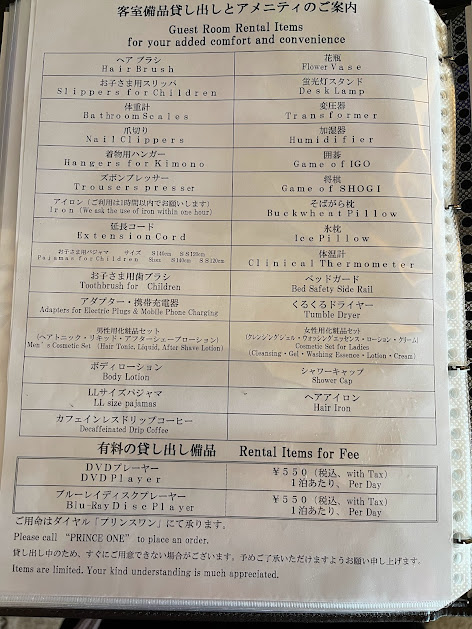 客室備品貸し出しとアメニティのご案内
Guest Room Rental Items
for your added comfort and convenience
ヘア ブラシ
Hair Brush
花瓶
Flower Vase
お子さま用スリッパ
Slippers for Children
蛍光灯スタンド
Desk Lamp
体重計
Bathroom Scales
変圧器
Transformer
爪切り
Nail Clippers
加湿器
Humidifier
着物用ハンガー
Hangers for Kimono
囲碁
Game of IGO
ズボンプレッサー
Trousers presser
将棋
Game of SHOGI
アイロン（ご利用は1時間以内でお願いします）
Iron (We ask the use of iron within one hour)
そばがら枕
Buckwheat Pillow
延長コード
Extension Cord
氷枕
Ice Pillow
お子さま用パジャマ サイズ S140cm SS120cm
Pajamas for Children Sizes S140cm SS120cm
体温計
Clinical Thermometer
お子さま用歯ブラシ
Toothbrush for Children
ベッドガード
Bed Safety Side Rail
アダプター・携帯充電器
Adapters for Electric Plugs & Mobile Phone Charging
くるくるドライヤー
Tumble Dryer
男性用化粧品セット
（ヘアトニック・リキッド・アフターシェーブローション）
Men's Cosmetic Set (Hair Tonic, Liquid, After Shave Lotion)
女性用化粧品セット
（クレンジングジェル・ウォッシングエッセンス・ローション・クリーム）
Cosmetic Set for Ladies
(Cleansing・Gel・Washing Essence・Lotion・Cream)
ボディローション
Body Lotion
シャワーキャップ
Shower Cap
LLサイズパジャマ
LL size pajamas
ヘアアイロン
Hair Iron
カフェインレスドリップコーヒー
Decaffeinated Drip Coffee
有料の貸し出し備品 Rental Items for Fee
DVDプレーヤー
DVD Player
￥550（税込、with Tax）
1泊あたり、Per Day
ブルーレイディスクプレーヤー
Blu-Ray Disc Player
￥550（税込、with Tax）
1泊あたり、Per Day
ご用命はダイヤル「プリンスワン」にて承ります。
Please call "PRINCE ONE" to place an order.
貸し出し中のため、すぐにご用意できない場合がございます。予めご了承いただけますようお願い申し上げます。
Items are limited. Your kind understanding is much appreciated.